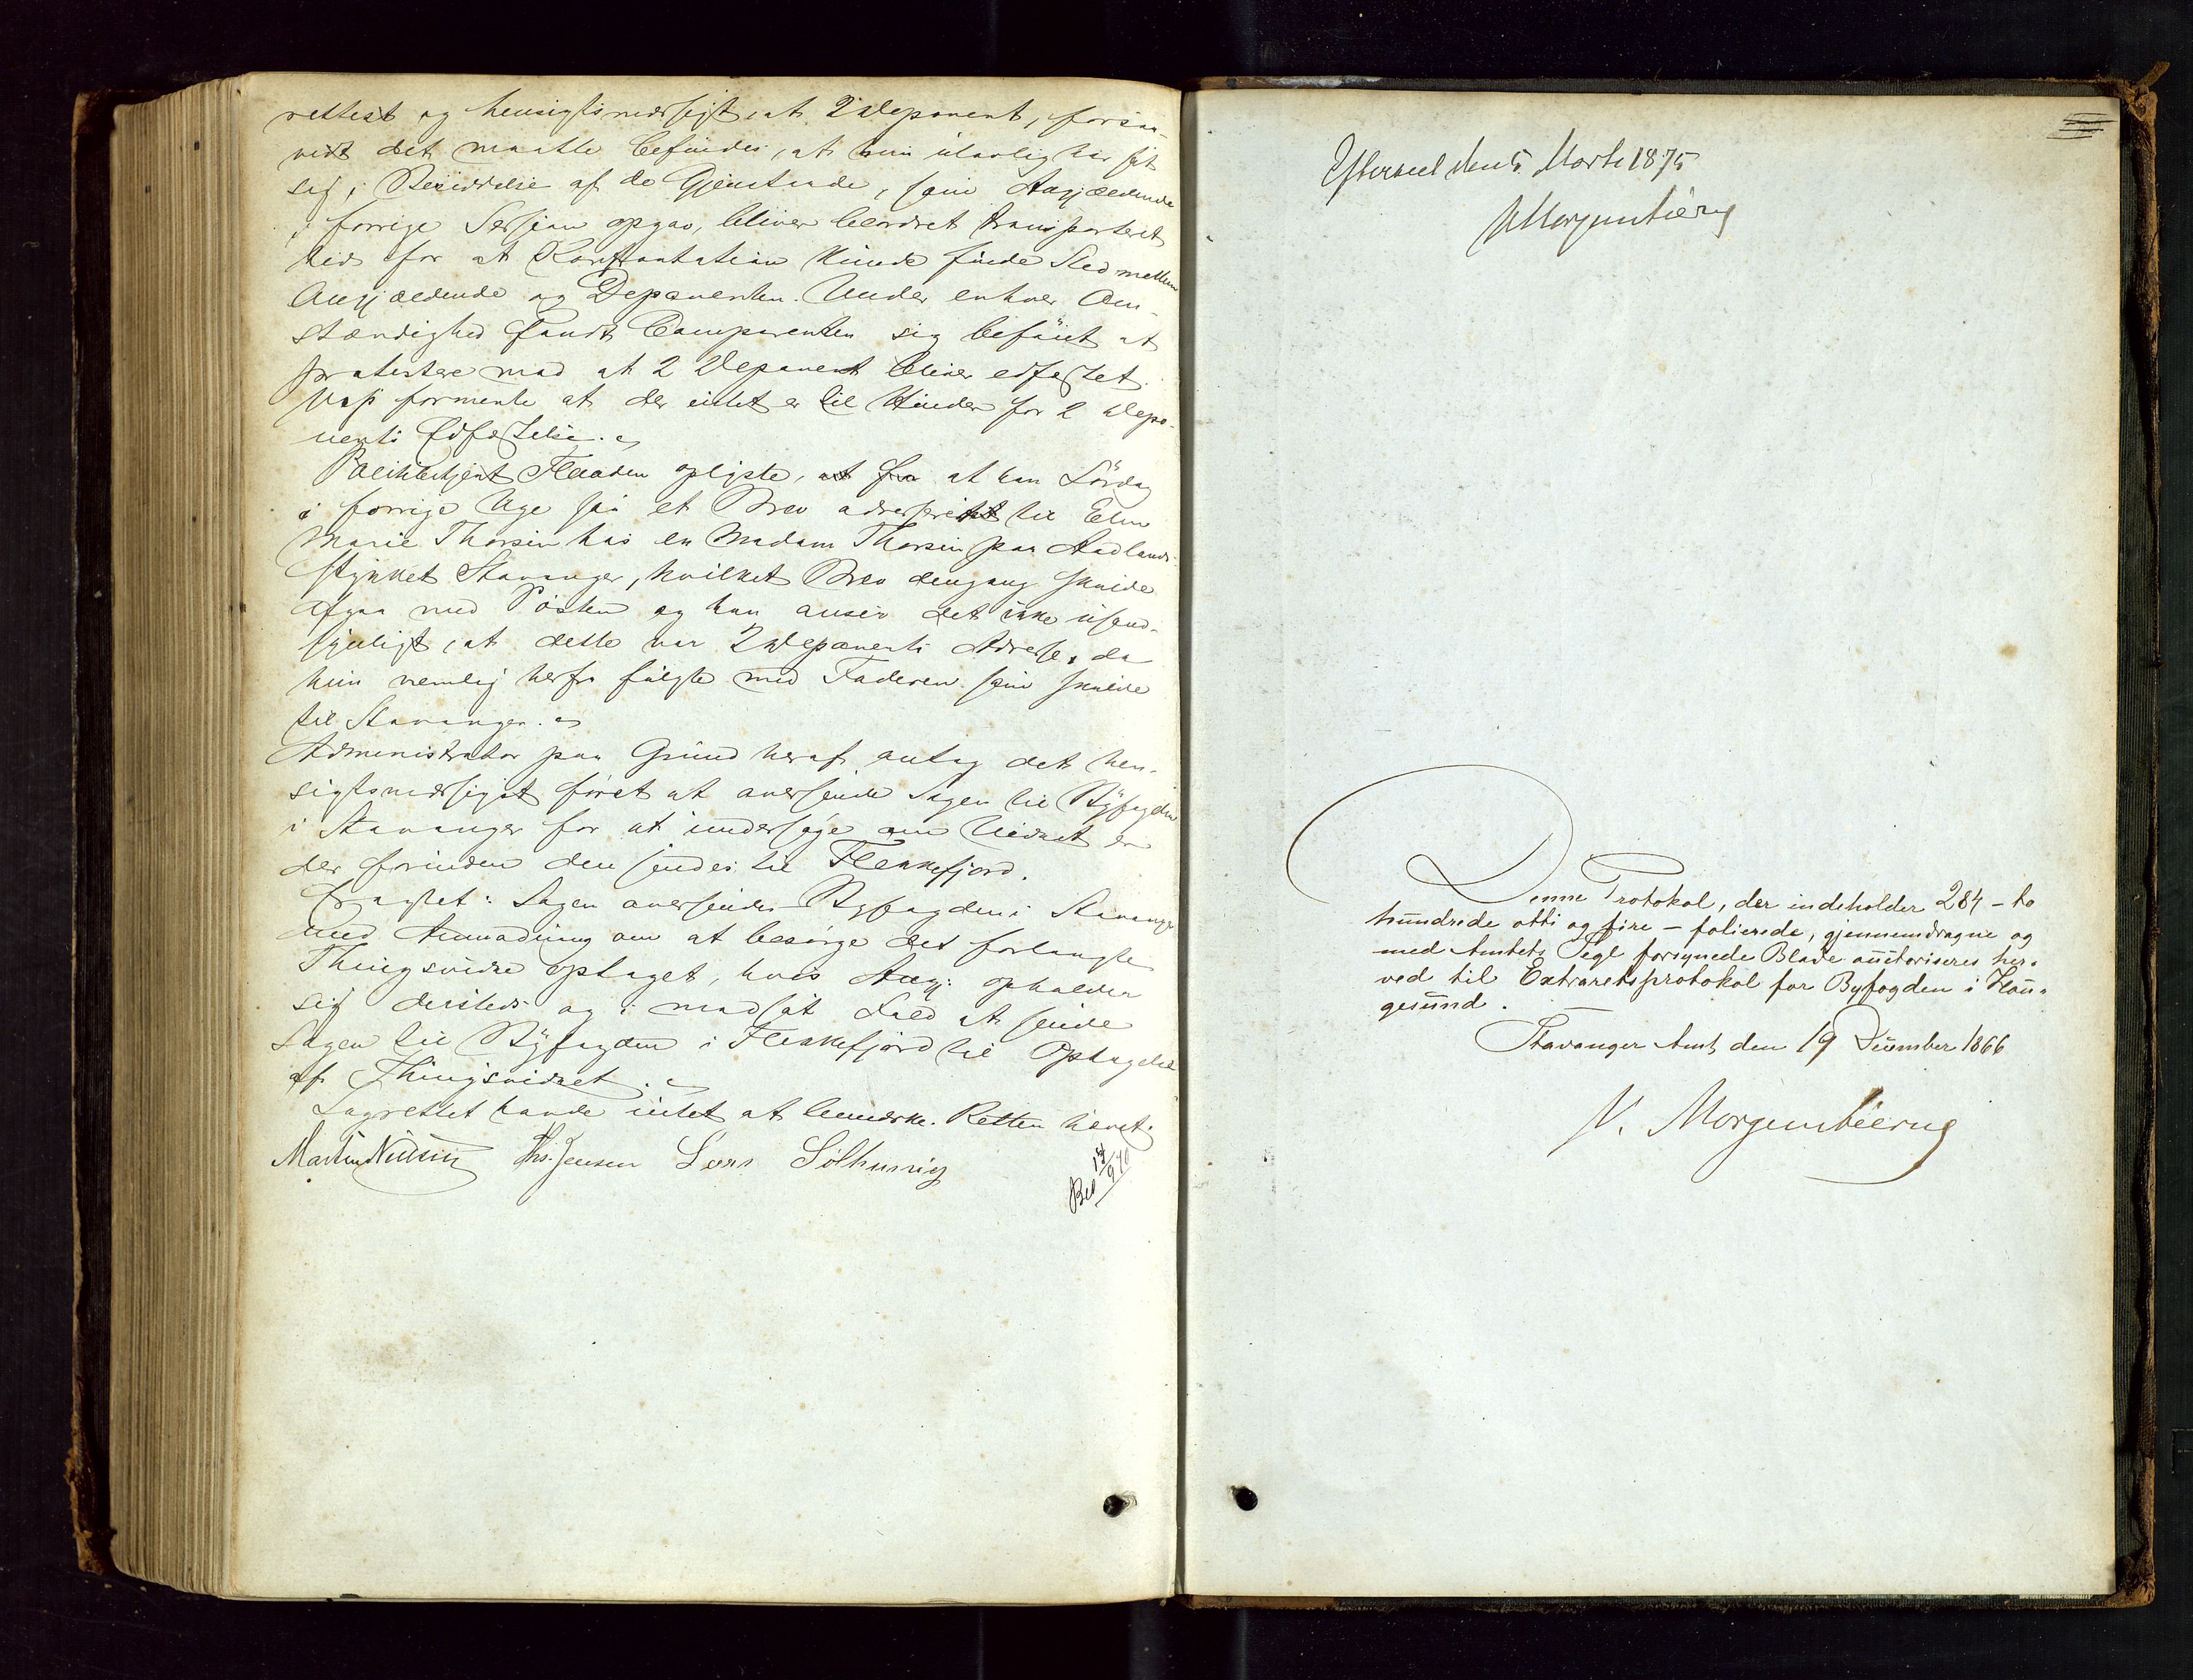 rettest og hensigtsmæssigst, at 2 Deponent, forsaa-
vidt det maatte befindes, at hun ulovlig har sat
sig i Besiddelse af de Gjenstande, som Angjældende
i forrige Session opgav, bliver beordret transporteret
hid for at Konfrontation kunde finde Sted mellem
Angjældende og Deponenten. Under enhver Om-
stændighed fandt Comparenten sig beføiet at
protestere mod at 2 Deponent bliver edfæstet.
formente at der intet er til Hinder for 2 Depo-
nents Edfæstelse.
Politibetjent Flaaden oplyste, at fra at han Lördag
i forrige Uge saa et Brev adresseret til Elen
Marie Thorsen hos en Madam Thorsen paa Aadlands-
stykket Stavanger, hvilket Brev dengang skulde
afgaa med Posten og han anser det ikke usand-
synligt, at dette var 2 Deponents Adresse, da
hun nemlig herfra fulgte med Faderen som skulde
til Stavanger.
Administrator paa Grund heraf antog det hen-
sigtsmæssigst først at oversende Sagen til Byfogden
i Stavanger for at undersøge om Vidnet er
der forinden den sendes til Flekkefjord.
Eragtet: Sagen oversendes Byfogden i Stavanger
med Anmodning om at besørge det forlangte
Thingsvidne optaget, hvis Angj: opholder
sig dersteds og i modsat Fald at sende
Sagen til Byfogden i Flekkefjord til Optagelse
af Thingsvidnet.
Lagrettet havde intet at bemærke. Retten hævet.
Martin Nielsen Ths. Jensen Lars Sølhusvig
Bes 14/9 70
Efterseet den 5. Marts 1875
V Morgenstierne
Denne Protokol, der indeholder 284 - to
hundrede otti og fire - folierede, gjennemdragne og
med Amtets Segl forsynede Blade autoriseres her-
ved til Extraretsprotokol for Byfogden i Hau-
gesund.
Stavanger Amt, den 19 December 1866
V. Morgenstierne